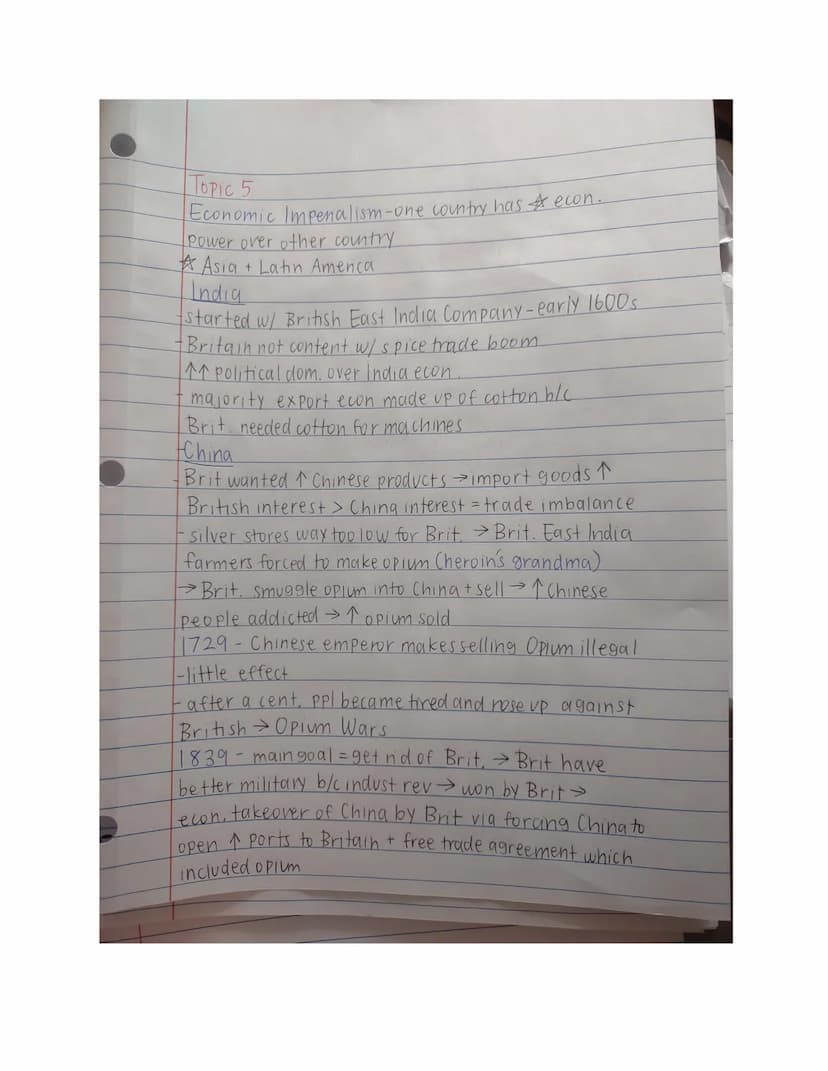 Topic 5
Economic Imperialism-one country has ☆ econ.
power over other country
☆ Asia + Latin America
India
-started w/ British East India Company-early 1600s
-Britain not content w/ spice trade boom
↑↑ political dom. over India econ.
- majority export econ made up of cotton b/c
Brit. needed cotton for machines
-China
-Brit wanted ↑ Chinese products → import goods ↑
British interest > China interest = trade imbalance
-silver stores way too low for Brit. → Brit. East India
farmers forced to make opium (heroin's grandma)
→ Brit. smuggle opium into China + sell → ↑ Chinese
people addicted → ↑ opium sold
1729 - Chinese emperor makes selling Opium illegal
-little effect
- after a cent. ppl became tired and rose up against
British → Opium Wars
1839 - main goal = get rid of Brit. → Brit have
better military b/c indust rev → won by Brit →
econ. takeover of China by Brit via forcing China to
open ↑ ports to Britain + free trade agreement which
included opium